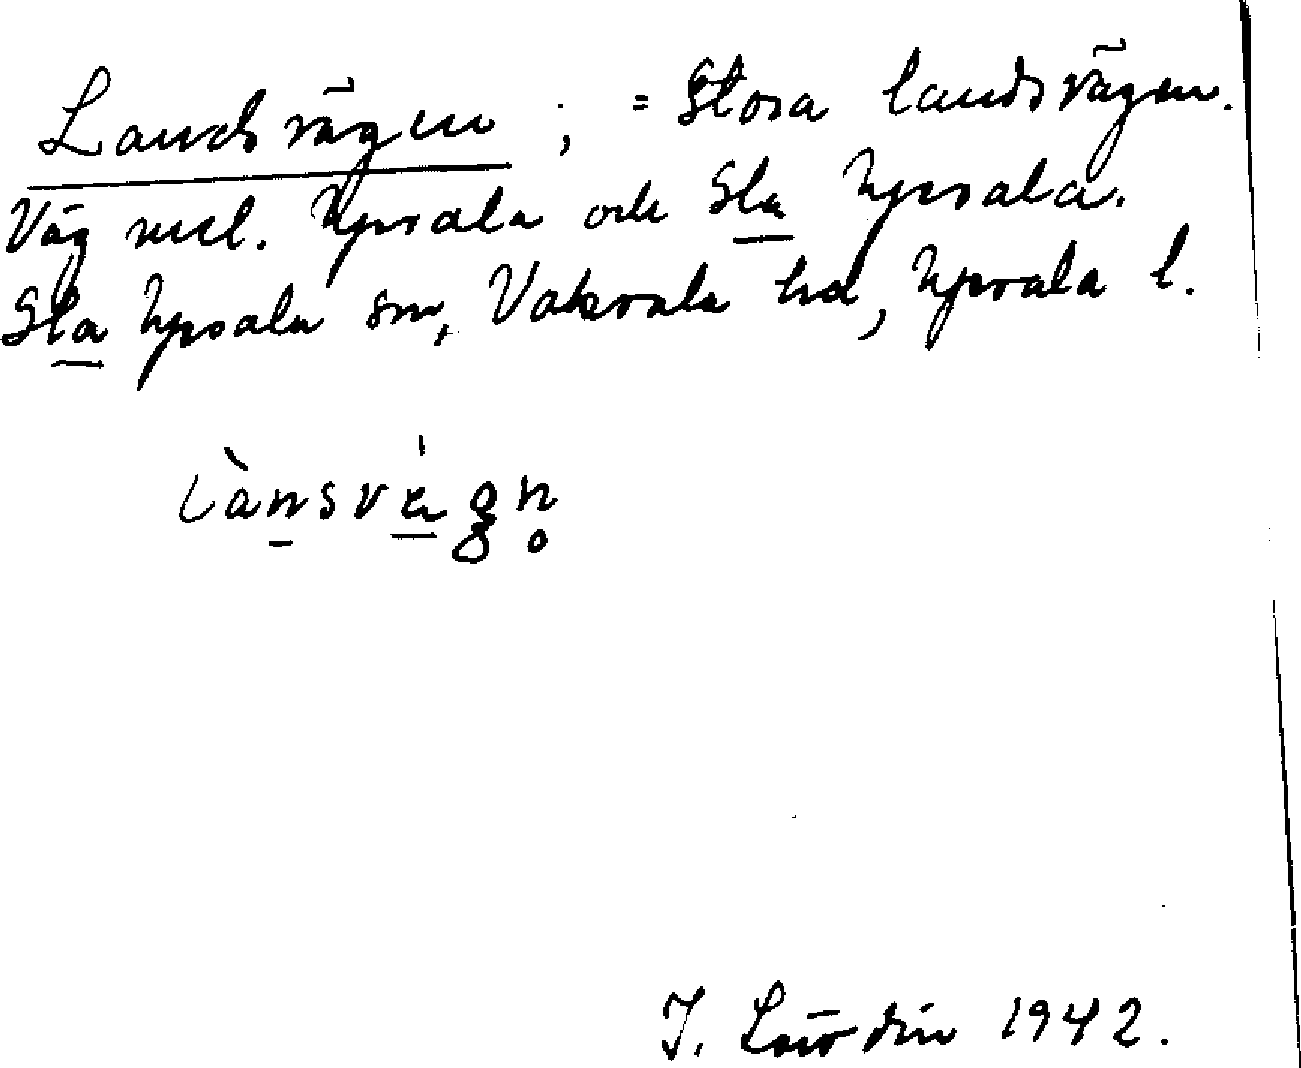 Landsvägen ; = Stora landsvägen.
Väg mel. Upsala och Gla Upsala.
Gla Upsala sn, Vaksala hd, Upsala l.
lànsvä́gn̥
J. 1942.